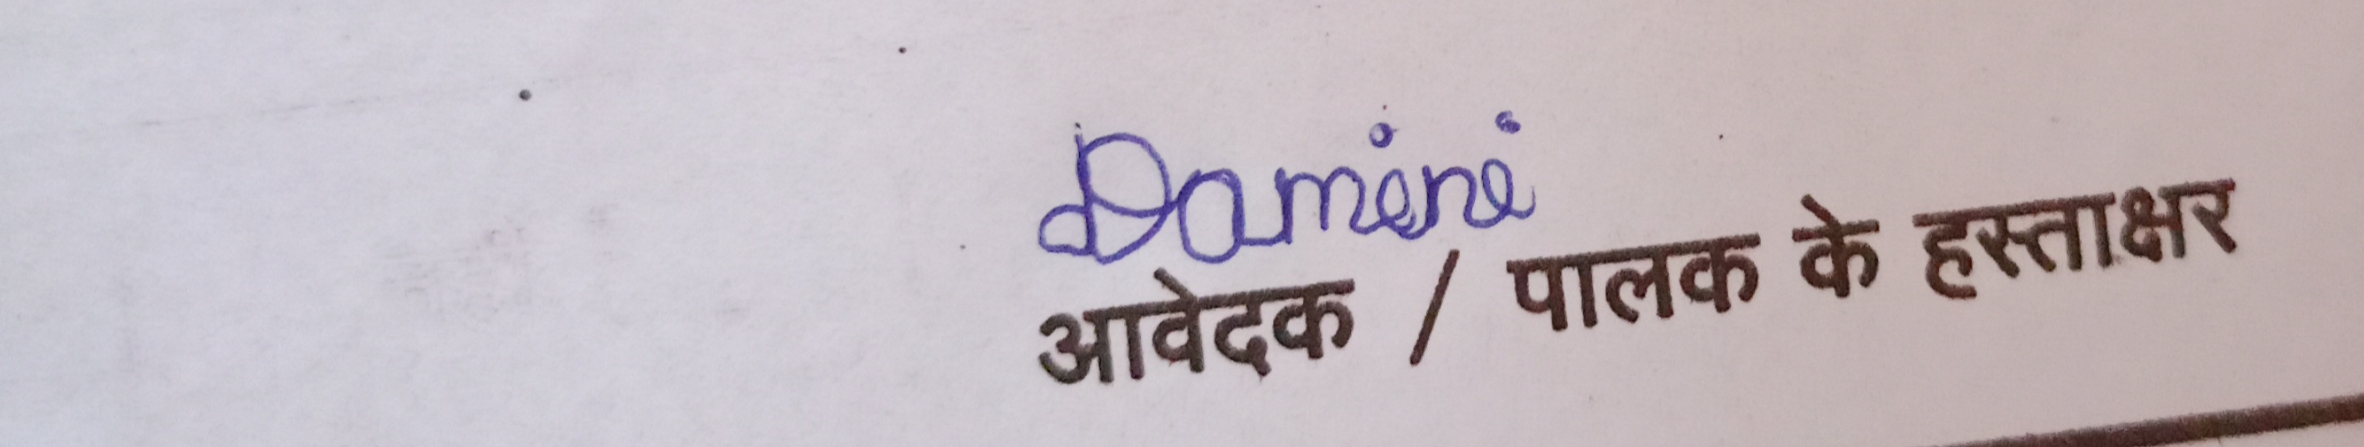 Damini
आवेदक / पालक के हस्ताक्षर